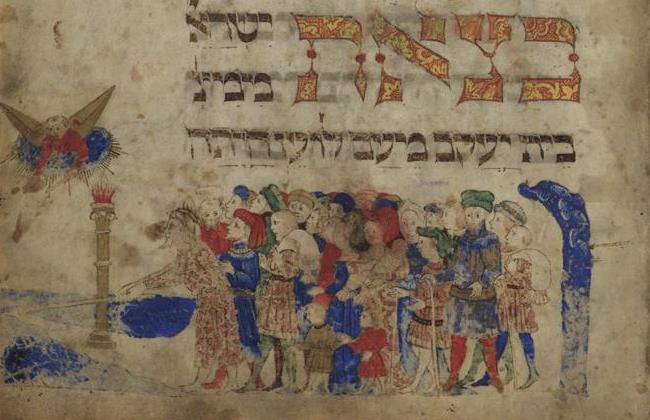 בצאת ישרא
ממצ
בית יעקב מעם לועז היתה